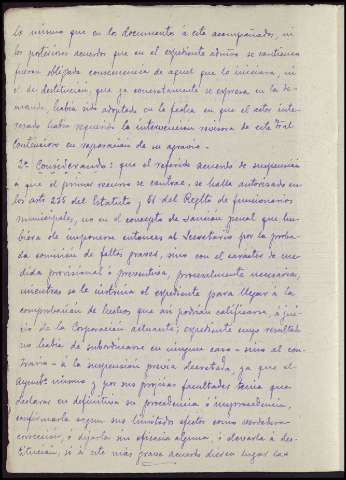 lo mismo que en los documentos á este acompañados, ni
los posteriores acuerdos que en el expediente admvo se contienen
fueron obligada consecuencia de aquel que lo iniciara, ni
el de destitución, que ya concretamente se expresa en la de-
manda, había sido adoptado en la fecha en que el actor inte-
resado había requerido la intervencion revisora de este Tral
Contencioso en reparacion de su agravio.-
2º Considerando: que el referido acuerdo de suspensión
a que el primer recurso se contrae, se halla autorizado en
los arts 235 del Estatuto y 61 del Reglto de funcionarios
municipales, no en el concepto de sancion penal que hu-
biera de imponerse entonces al Secretario por la proba-
da comision de faltas graves, sino con el caracter de me-
dida provisional ó preventiva, procesalmente necesaria,
mientras se le instruia el expediente para llegar á la
comprobación de hechos que asi podrian calificarse, á jui-
cio de la Corporación actuante; expediente cuyo resultado
no había de subordinarse en ninguna caso - sino al con-
trario - á la suspensión previa decretada, ya que el
Ayuntº mismo y por sus propias facultades tenia que
declarar en definitiva su procedencia ó improcedencia,
confirmarla segun sus limitados efectos como verdadera
corrección, ó dejarla sin eficacia alguna, ó elevarla á des-
titución, si á este más grave acuerdo diesen lugar las